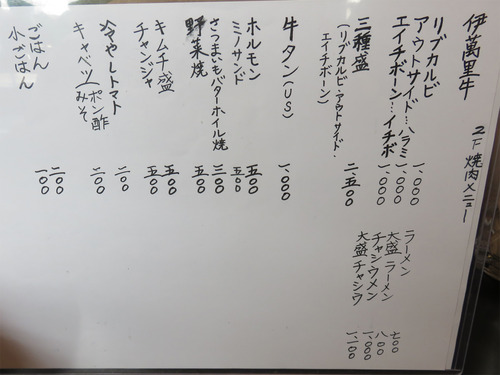 伊萬里牛
2F 焼肉メニュー
リブカルビ 一、〇〇〇
アウトサイド…ハラミ 一、〇〇〇
エイチボーン…イチボ 一、〇〇〇
三種盛 二、五〇〇
(リブカルビ・アウトサイド・
エイチボーン)
牛タン(US) 一、〇〇〇
ホルモン 五〇〇
ミノサンド 五〇〇
さつまいもバターホイル焼 三〇〇
野菜焼 五〇〇
キムチ盛 五〇〇
チャンジャ 五〇〇
冷やしトマト 二〇〇
キャベツ(ポン酢 みそ 二〇〇
ごはん 二〇〇
小ごはん 一〇〇
ラーメン 七〇〇
大盛ラーメン 八〇〇
チャシウメン 一、〇〇〇
大盛チャシウ 一、一〇〇